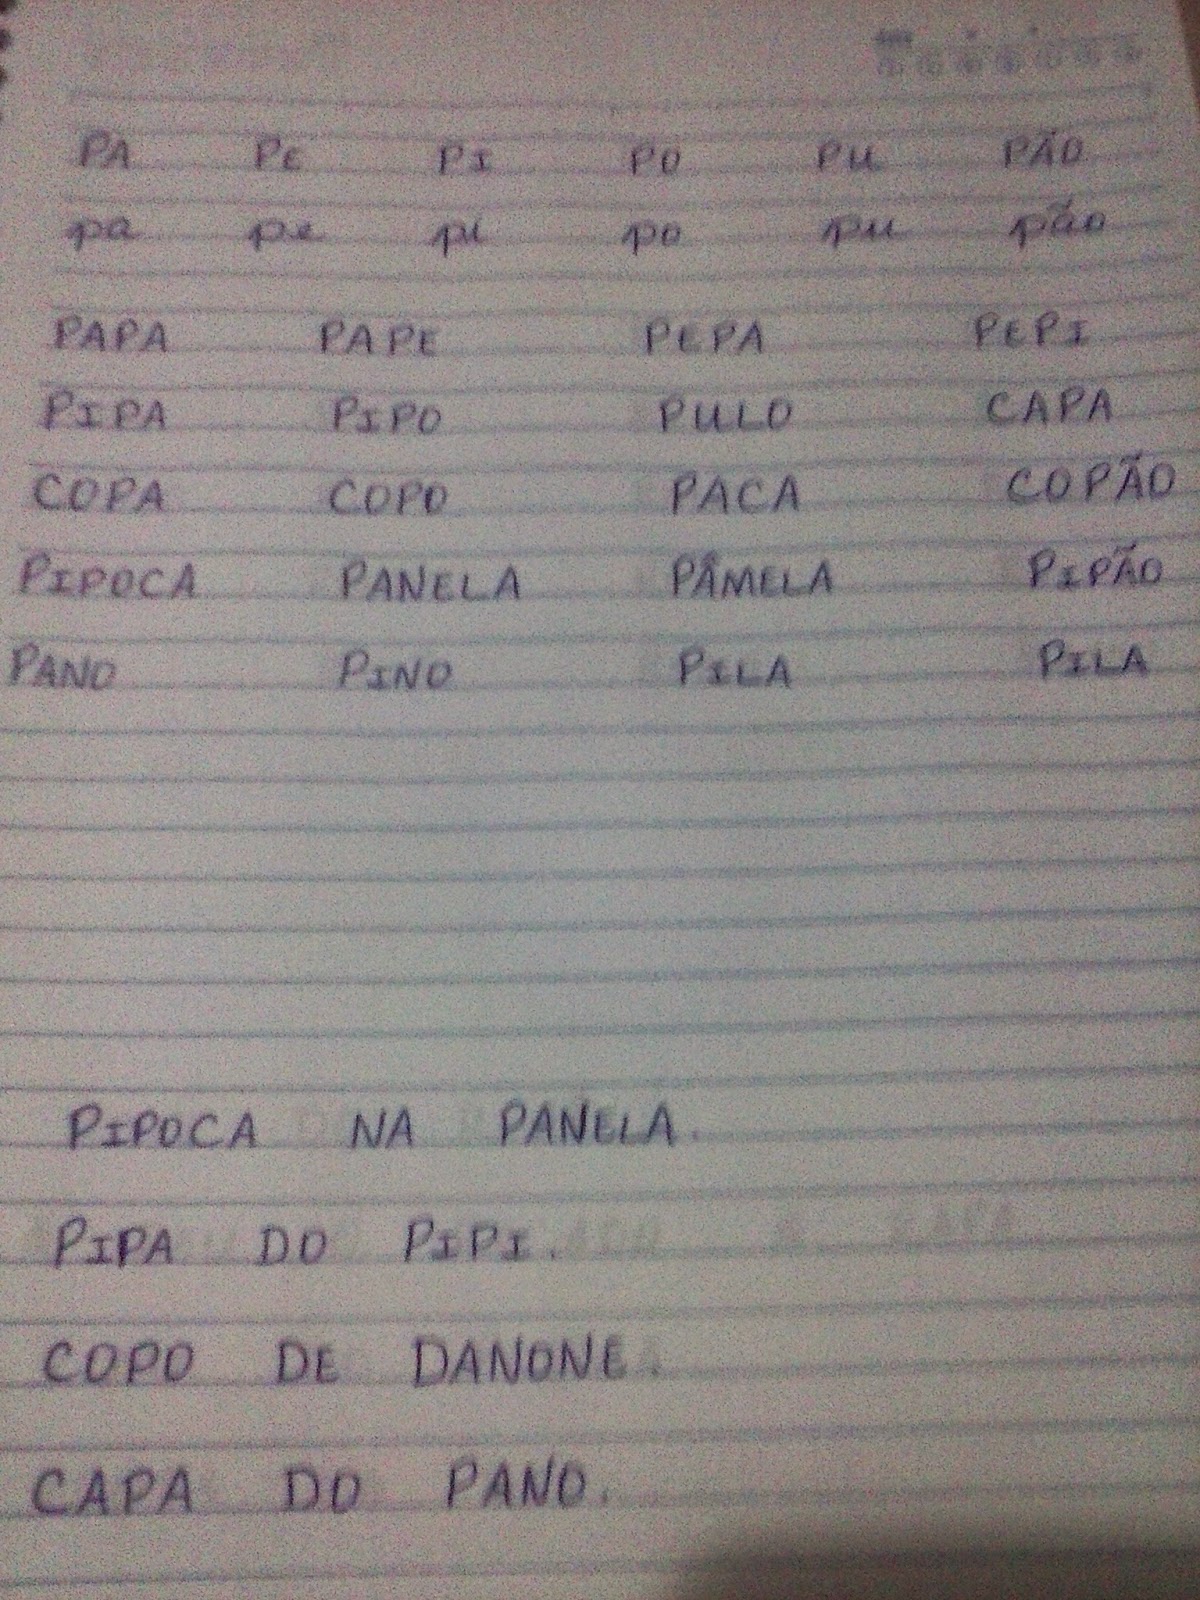 PA PE PI PO PU PÃO
pa pe pi po pu pão
PAPA PAPE PEPA PEPI
PIPA PIPO PULO CAPA
COPA COPO PACA COPÃO
PIPOCA PANELA PÂMELA PIPÃO
PANO PINO PILA PILA
PIPOCA NA PANELA.
PIPA DO PIPI.
COPO DE DANONE.
CAPA DO PANO.